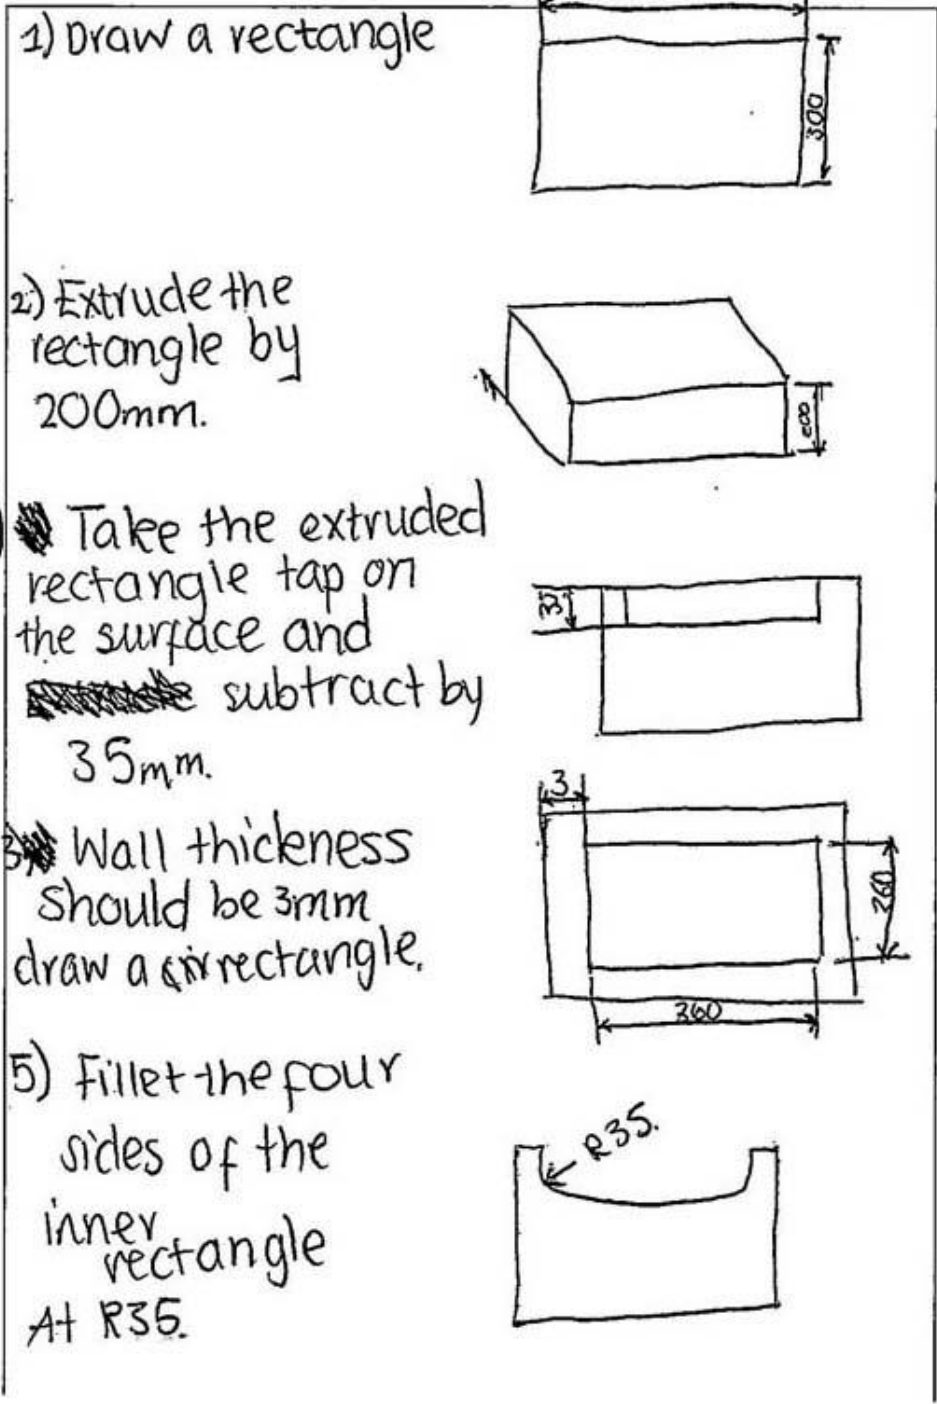 1) Draw a rectangle
300
2) Extrude the
rectangle by
200mm.
200
Take the extruded
rectangle tap on
the surface and
subtract by
35mm.
35
3) Wall thickness
should be 3mm
draw a rectangle.
3
260
360
5) Fillet the four
sides of the
inner
rectangle
At R35.
R35.